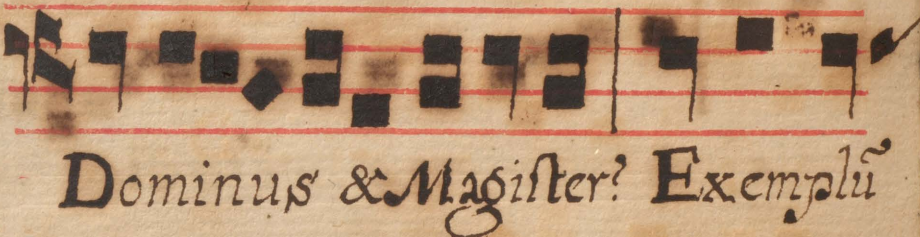 Dominus & Magiſter? Exemplũ